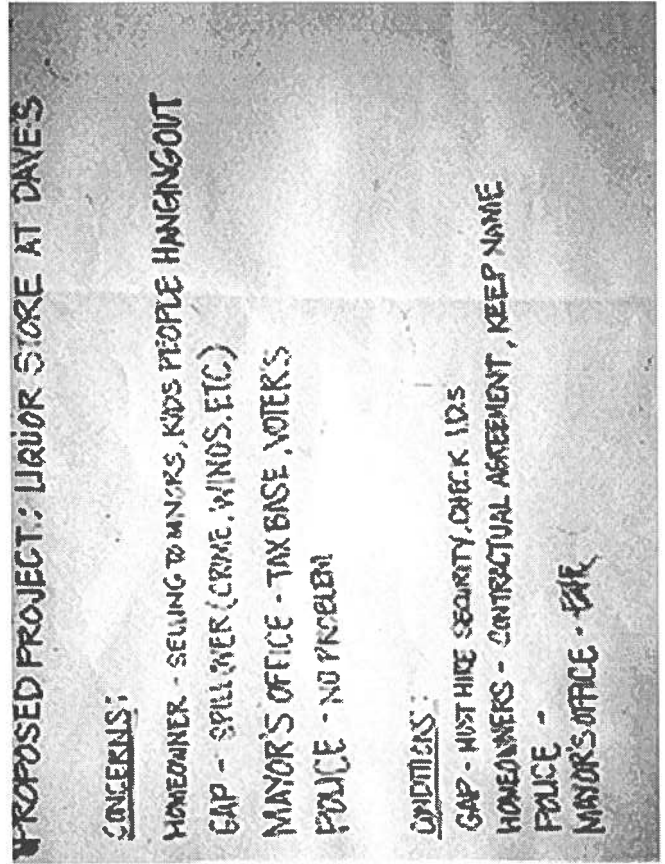 PROPOSED PROJECT: LIQUOR STORE AT DAVE'S
CONCERNS:
HOMEOWNER - SELLING TO MINORS, KIDS PEOPLE HANGINGOUT
GAP - SPILL OVER (CRIME, WINOS, ETC)
MAYOR'S OFFICE - TAX BASE, VOTER'S
POLICE - NO PROBLEM
CONDITIONS:
GAP - MUST HIRE SECURITY, CHECK I.D.S
HOMEOWNERS - CONTRACTUAL AGREEMENT, KEEP NAME
POLICE -
MAYOR'S OFFICE -